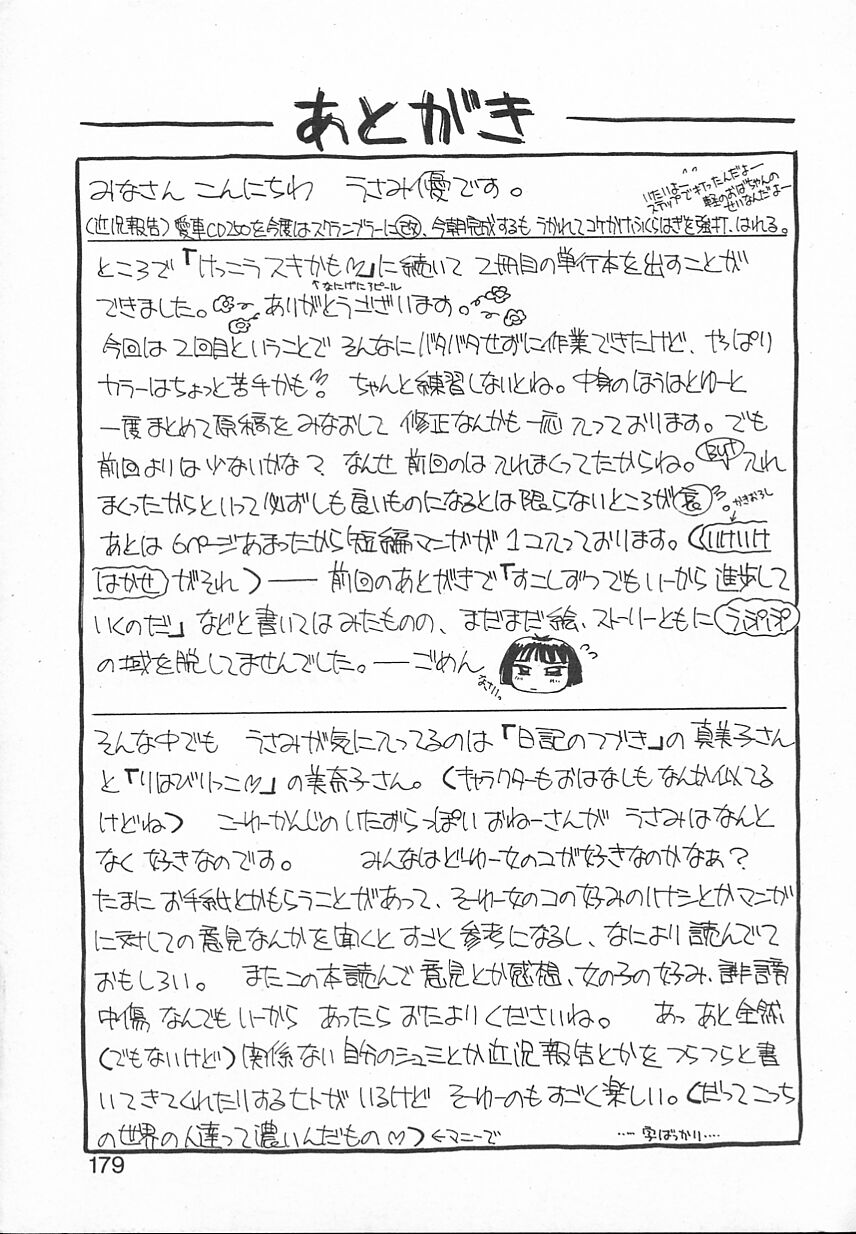 あとがき
みなさん こんにちわ うさみ優です。
いたいよー
ステップで打ったんだよー
軽のおばちゃんの
せいなんだよー
(近況報告)愛車CD250を今度はスクランブラーに改、今朝完成するも うかれてコケかけふくらはぎを強打、はれる。
ところで「けっこうスキかも♡」に続いて 2冊目の単行本を出すことが
↑なにげにろピール
できました。ありがとうございます。
今回は2回目ということで そんなにバタバタせずに作業できたけど、やっぱり
カラーはちょっと苦手かも。ちゃんと練習しないとね。中身のほうはとゆーと
一度まとめて原稿を みなおして 修正なんかも一応 入っております。でも
前回よりは少ないかな? なんせ 前回のは入れまくってたからね。But入れ
まくったからといって必ずしも良いものになるとは限らないところが哀。
かきおろし
あとは6ページあまったから短編マンガが1コ入っております。(いけいけ
はかせがそれ)── 前回のあとがきで「すこしずつでもいーから進歩して
いくのだ」などと書いてはみたものの、まだまだ絵、ストーリーともにうぷぷ
の域を脱してませんでした。──ごめん
なさい。
そんな中でも うさみが気に入ってるのは「日記のつづき」の真美子さん
と「りはびりっこ♡」の美奈子さん。(キャラクターもおはなしもなんか似てる
けどね) こーゆーかんじのいたずらっぽいおねーさんが うさみはなんと
なく好きなのです。 みんなはどーゆー女のコが好きなのかなぁ?
たまにお手紙とかもらうことがあって、そーゆー女のコの好みのハナシとかマンガ
に対しての意見なんかを聞くとすごく参考になるし、なにより読んでて
おもしろい。 またこの本読んで意見とか感想、女の子の好み、誹謗
中傷なんでもいーから あったらおたよりくださいね。 あっあと全然
(でもないけど)関係ない自分のシュミとか近況報告とかをつらつらと書
いてきてくれたりするヒトがいるけど そーゆーのもすごく楽しい。(だってこっち
の世界の人達って濃いんだもの♡)←マニーで
‥‥字ばっかり‥‥
179